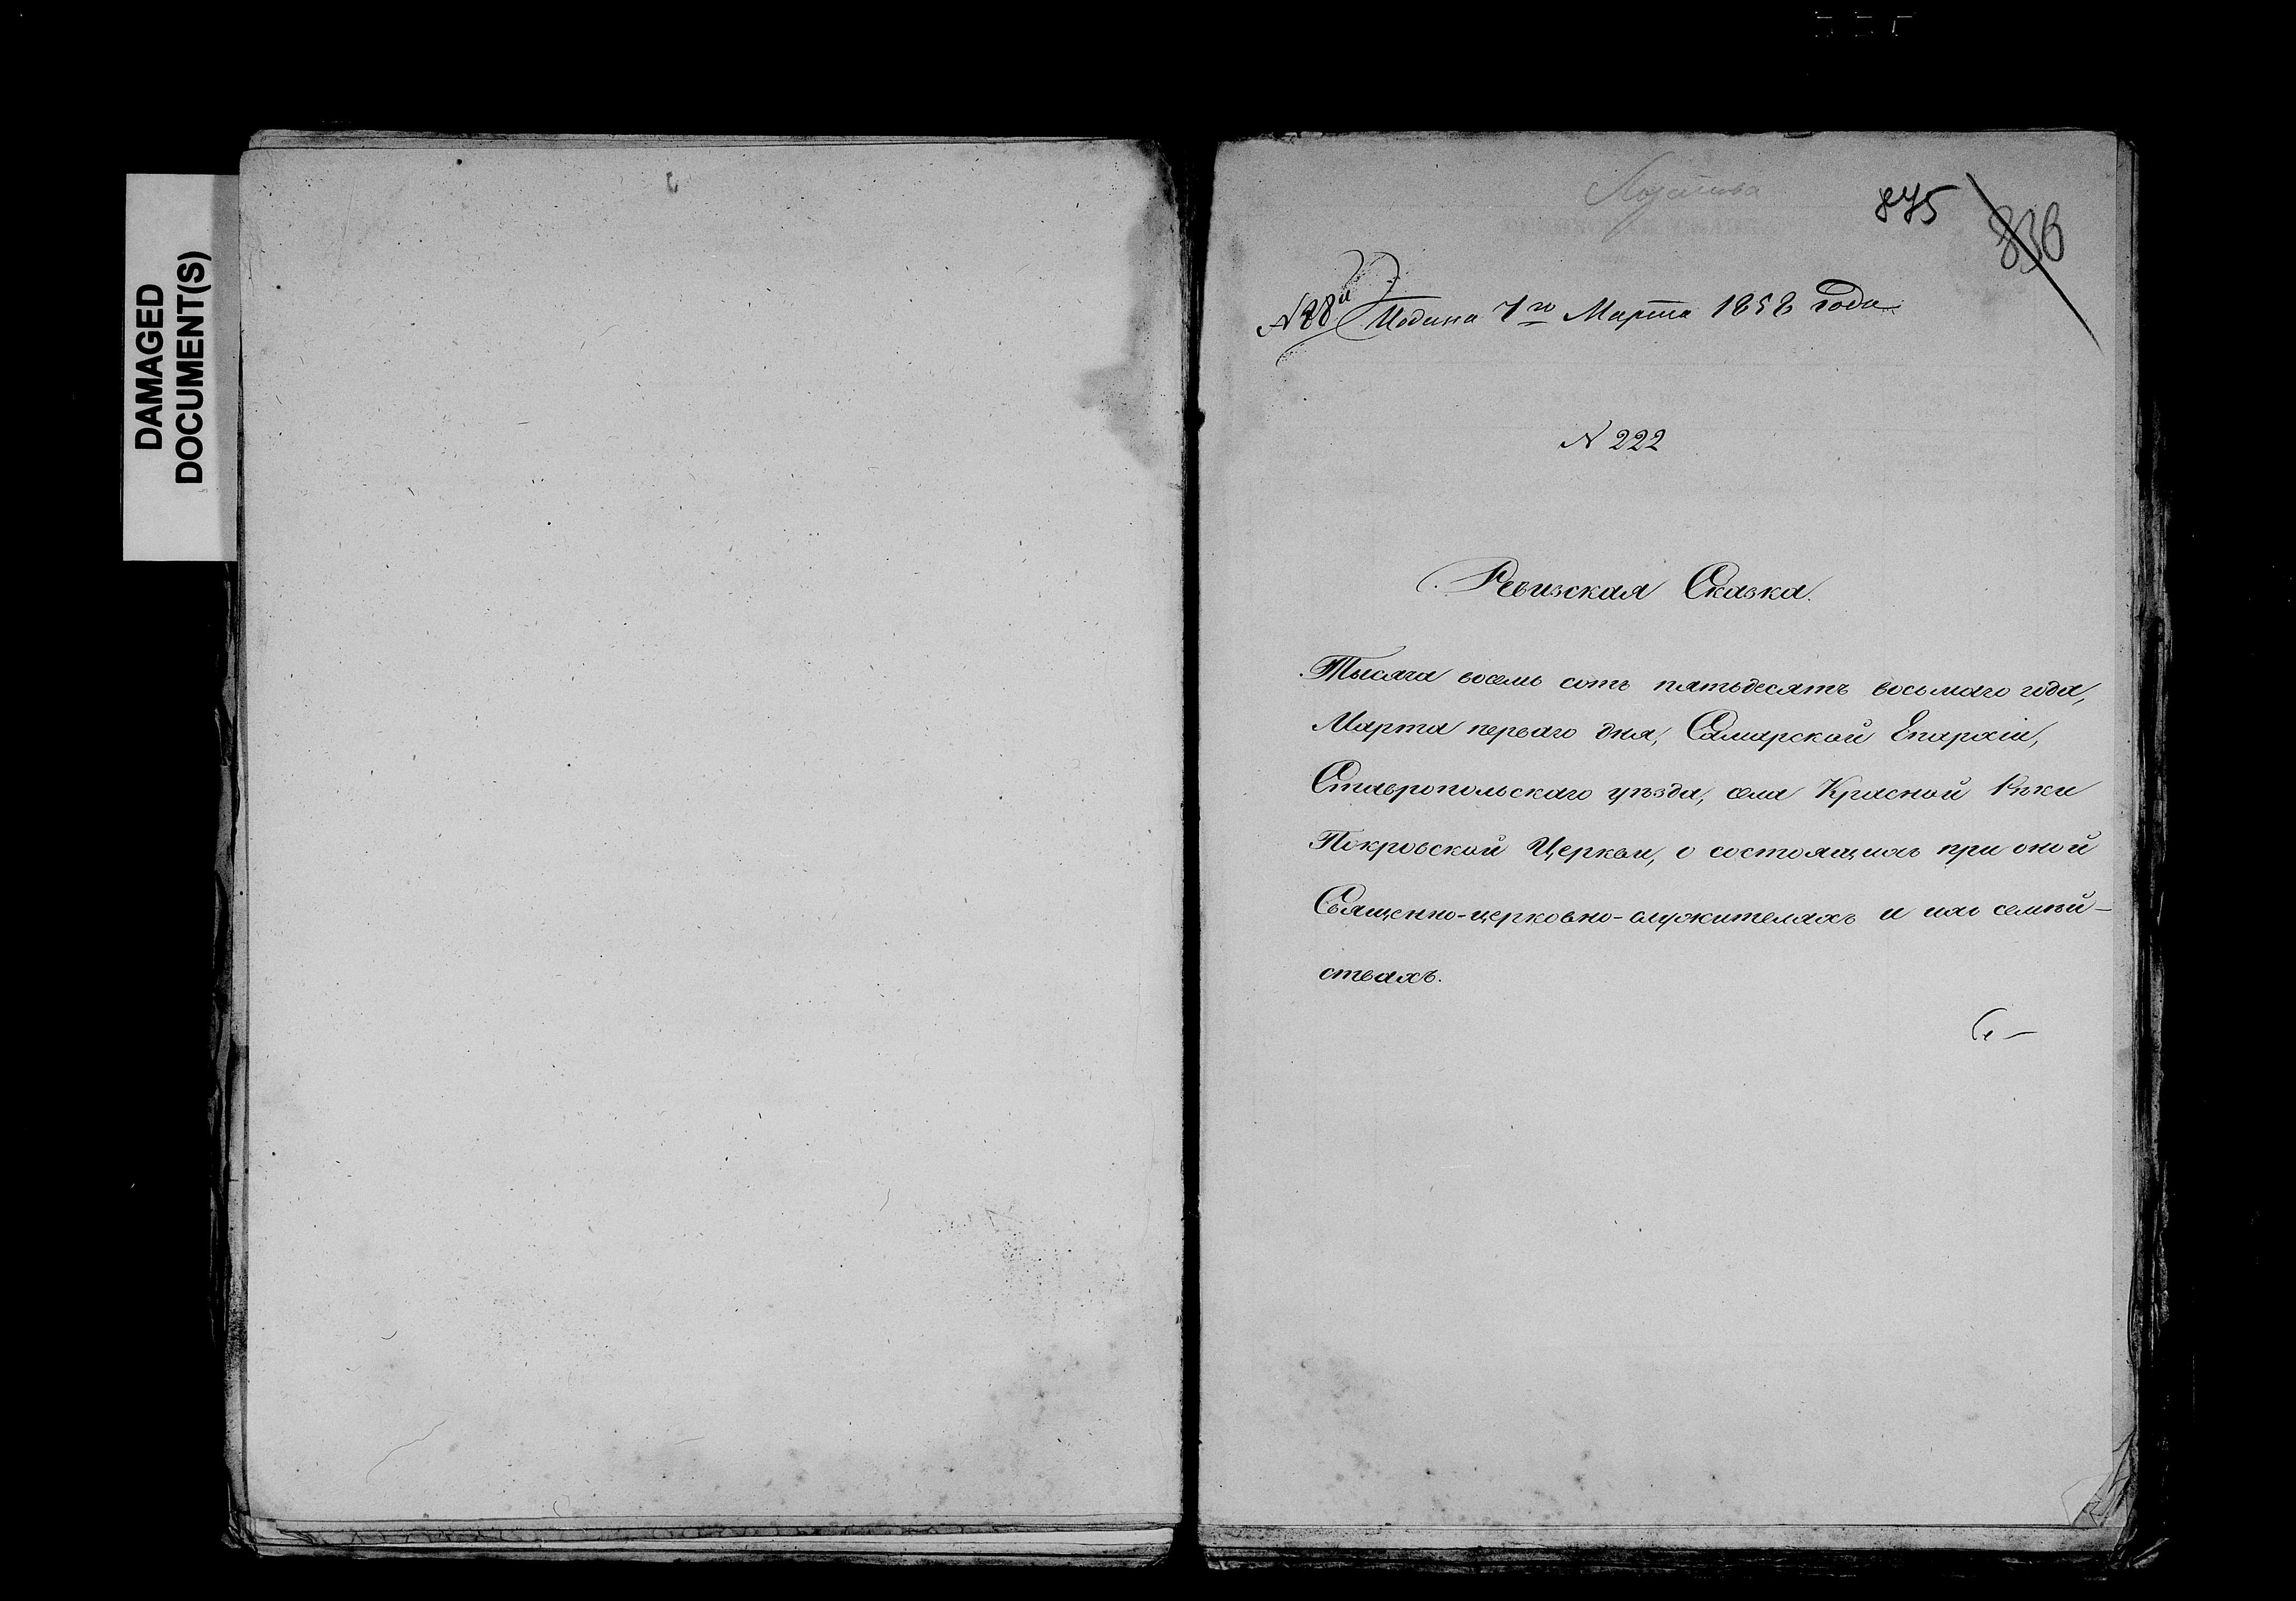 DAMAGED
DOCUMENT(S)
875
836
Подана 7го Марта 1858 года
N 222
Ревизская Сказка.
Тысяча восемь сотъ пятьдесятъ восьмаго года,
Марта перваго дня, Самарской Епархіи,
Ставропольскаго уѣзда, села Красной Рѣки
Покровской Церкви, о состоящихъ при оной
Священно-церковно-служителяхъ и ихъ семѣй-
ствахъ.